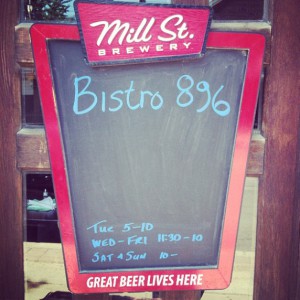 Mill St.
BREWERY
Bistro 896
TUE 5-10
WED - FRI 11:30 - 10
SAT & SUN 10-
GREAT BEER LIVES HERE